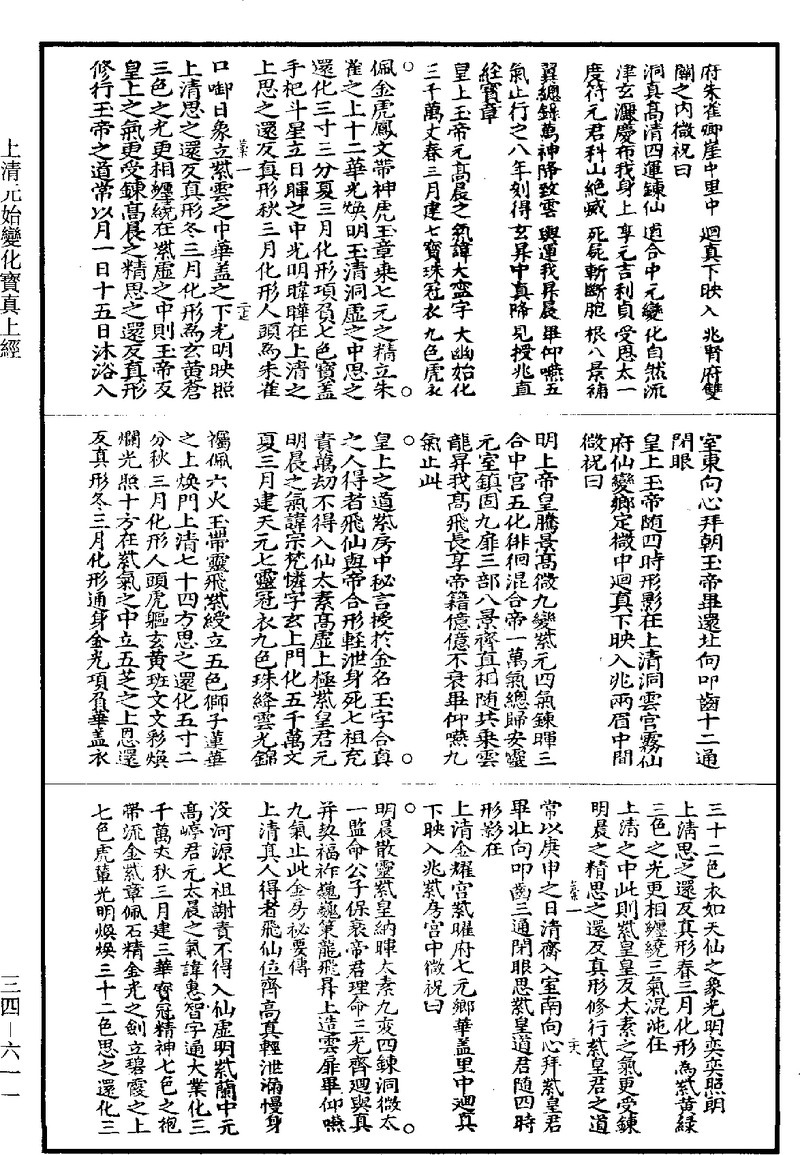 府朱雀鄉崖中里中迴真下映入兆腎府雙
闕之內微祝曰
洞真高清四運鍊仙適合中元變化自然流
津玄灑慶布我身上享元吉利貞受恩太一
度符元君科山絕滅死屍斬斷胞根八景補
翼總錄萬神降致雲輿運我昇晨畢仰嚥五
氣止行之八年刻得玄昇中真降見授兆直
經寶章
皇上玉帝元高晨之氣諱大蠻字大幽始化
三千萬丈春三月建七寶珠冠衣九色虎衣
佩金虎鳳文帶神虎玉章乘七元之精立朱
雀之上十二華光煥明玉清洞虛之中思之
還化三寸三分夏三月化形項負七色寶蓋
手把斗星立日暉之中光明暐曄在上清之
上思之還反真形秋三月化形人頭鳥朱雀
口啣日象立紫雲之中華蓋之下光明映照
上清思之還反真形冬三月化形為玄黃蒼
三色之光更相纏繞在紫虛之中則玉帝反
皇上之氣更受鍊高晨之精思之還反真形
修行玉帝之道常以月一日十五日沐浴入
室東向心拜朝玉帝畢還北向叩齒十二通
閉眼
皇上玉帝隨四時形影在上清洞雲宮霧仙
府仙變鄉定微中迴真下映入兆兩眉中間
微祝曰
明上帝皇騰景高微九變紫元四氣鍊暉三
合中宮五化徘徊混合帝一萬氣總歸安靈
元室鎮固九扉三部八景齊真相隨共乘雲
龍昇我高飛長享帝籍億億不衰畢仰嚥九
氣止此
皇上之道紫房中秘言授於金名玉字合真
之人得者飛仙與帝合形輕泄身死七祖充
責萬劫不得入仙太素高虛上極紫皇君元
明晨之氣諱宗梵憐字玄上門化五千萬丈
夏三月建天元七靈冠衣九色珠絳雲光錦
襦佩六火玉帶靈飛紫綬立五色獅子蓮華
之上煥門上清七十四方思之還化五寸二
分秋三月化形人頭虎軀玄黃班文文彩煥
爛光照十方在紫氣之中立五芝之上思還
反真形冬三月化形通身金光項負華蓋衣
三十二色衣如天仙之象光明奕奕照朗
上清思之還反真形春三月化形為紫黃綠
三色之光更相纏繞三氣混沌在
上清之中此則紫皇皇反太素之氣更受鍊
明晨之精思之還反真形修行紫皇君之道
常以庚申之日清齋入室南向心拜紫皇君
畢北向叩齒三通閉眼思紫皇道君隨四時
形影在
上清金耀宮紫曜府七元鄉華蓋里中迴真
下映入兆紫房宮中微祝曰
明晨散靈紫皇納暉太素九变四鍊洞微太
一監命公子保衰帝君理命三光齊迴與真
并契福祚巍巍策龍飛昇上造雲扉畢仰嚥
九氣止此金房秘要傳
上清真人得者飛仙位齊高真輕泄漏慢身
沒河源七祖謝責不得入仙虛明紫蘭中元
高崢君元太晨之氣諱惠智字通大業化三
千萬丈秋三月建三華寶冠精神七色之袍
帶流金紫章佩石精金光之劍立碧霞之上
七色虎輦光明煥煥三十二色思之還化三
上清元始變化寶真上經
三四—六一一